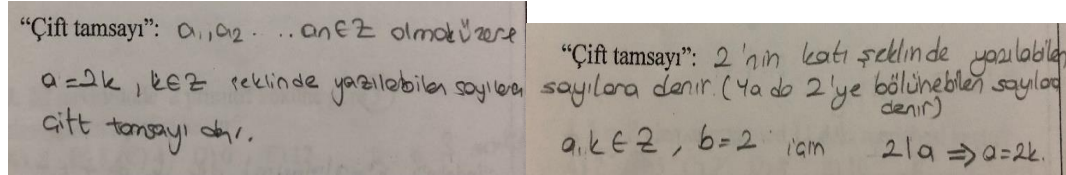 “Çift tamsayı”: a₁, a₂ . . . an ∈ Z olmak üzere
a = 2k, k ∈ Z şeklinde yazılabilen sayılara
çift tamsayı denir.
“Çift tamsayı”: 2'nin katı şeklinde yazılabilen
sayılara denir. (Ya da 2'ye bölünebilen sayılara
denir)
a, k ∈ Z, b = 2 için 2 | a ⇒ a = 2k.